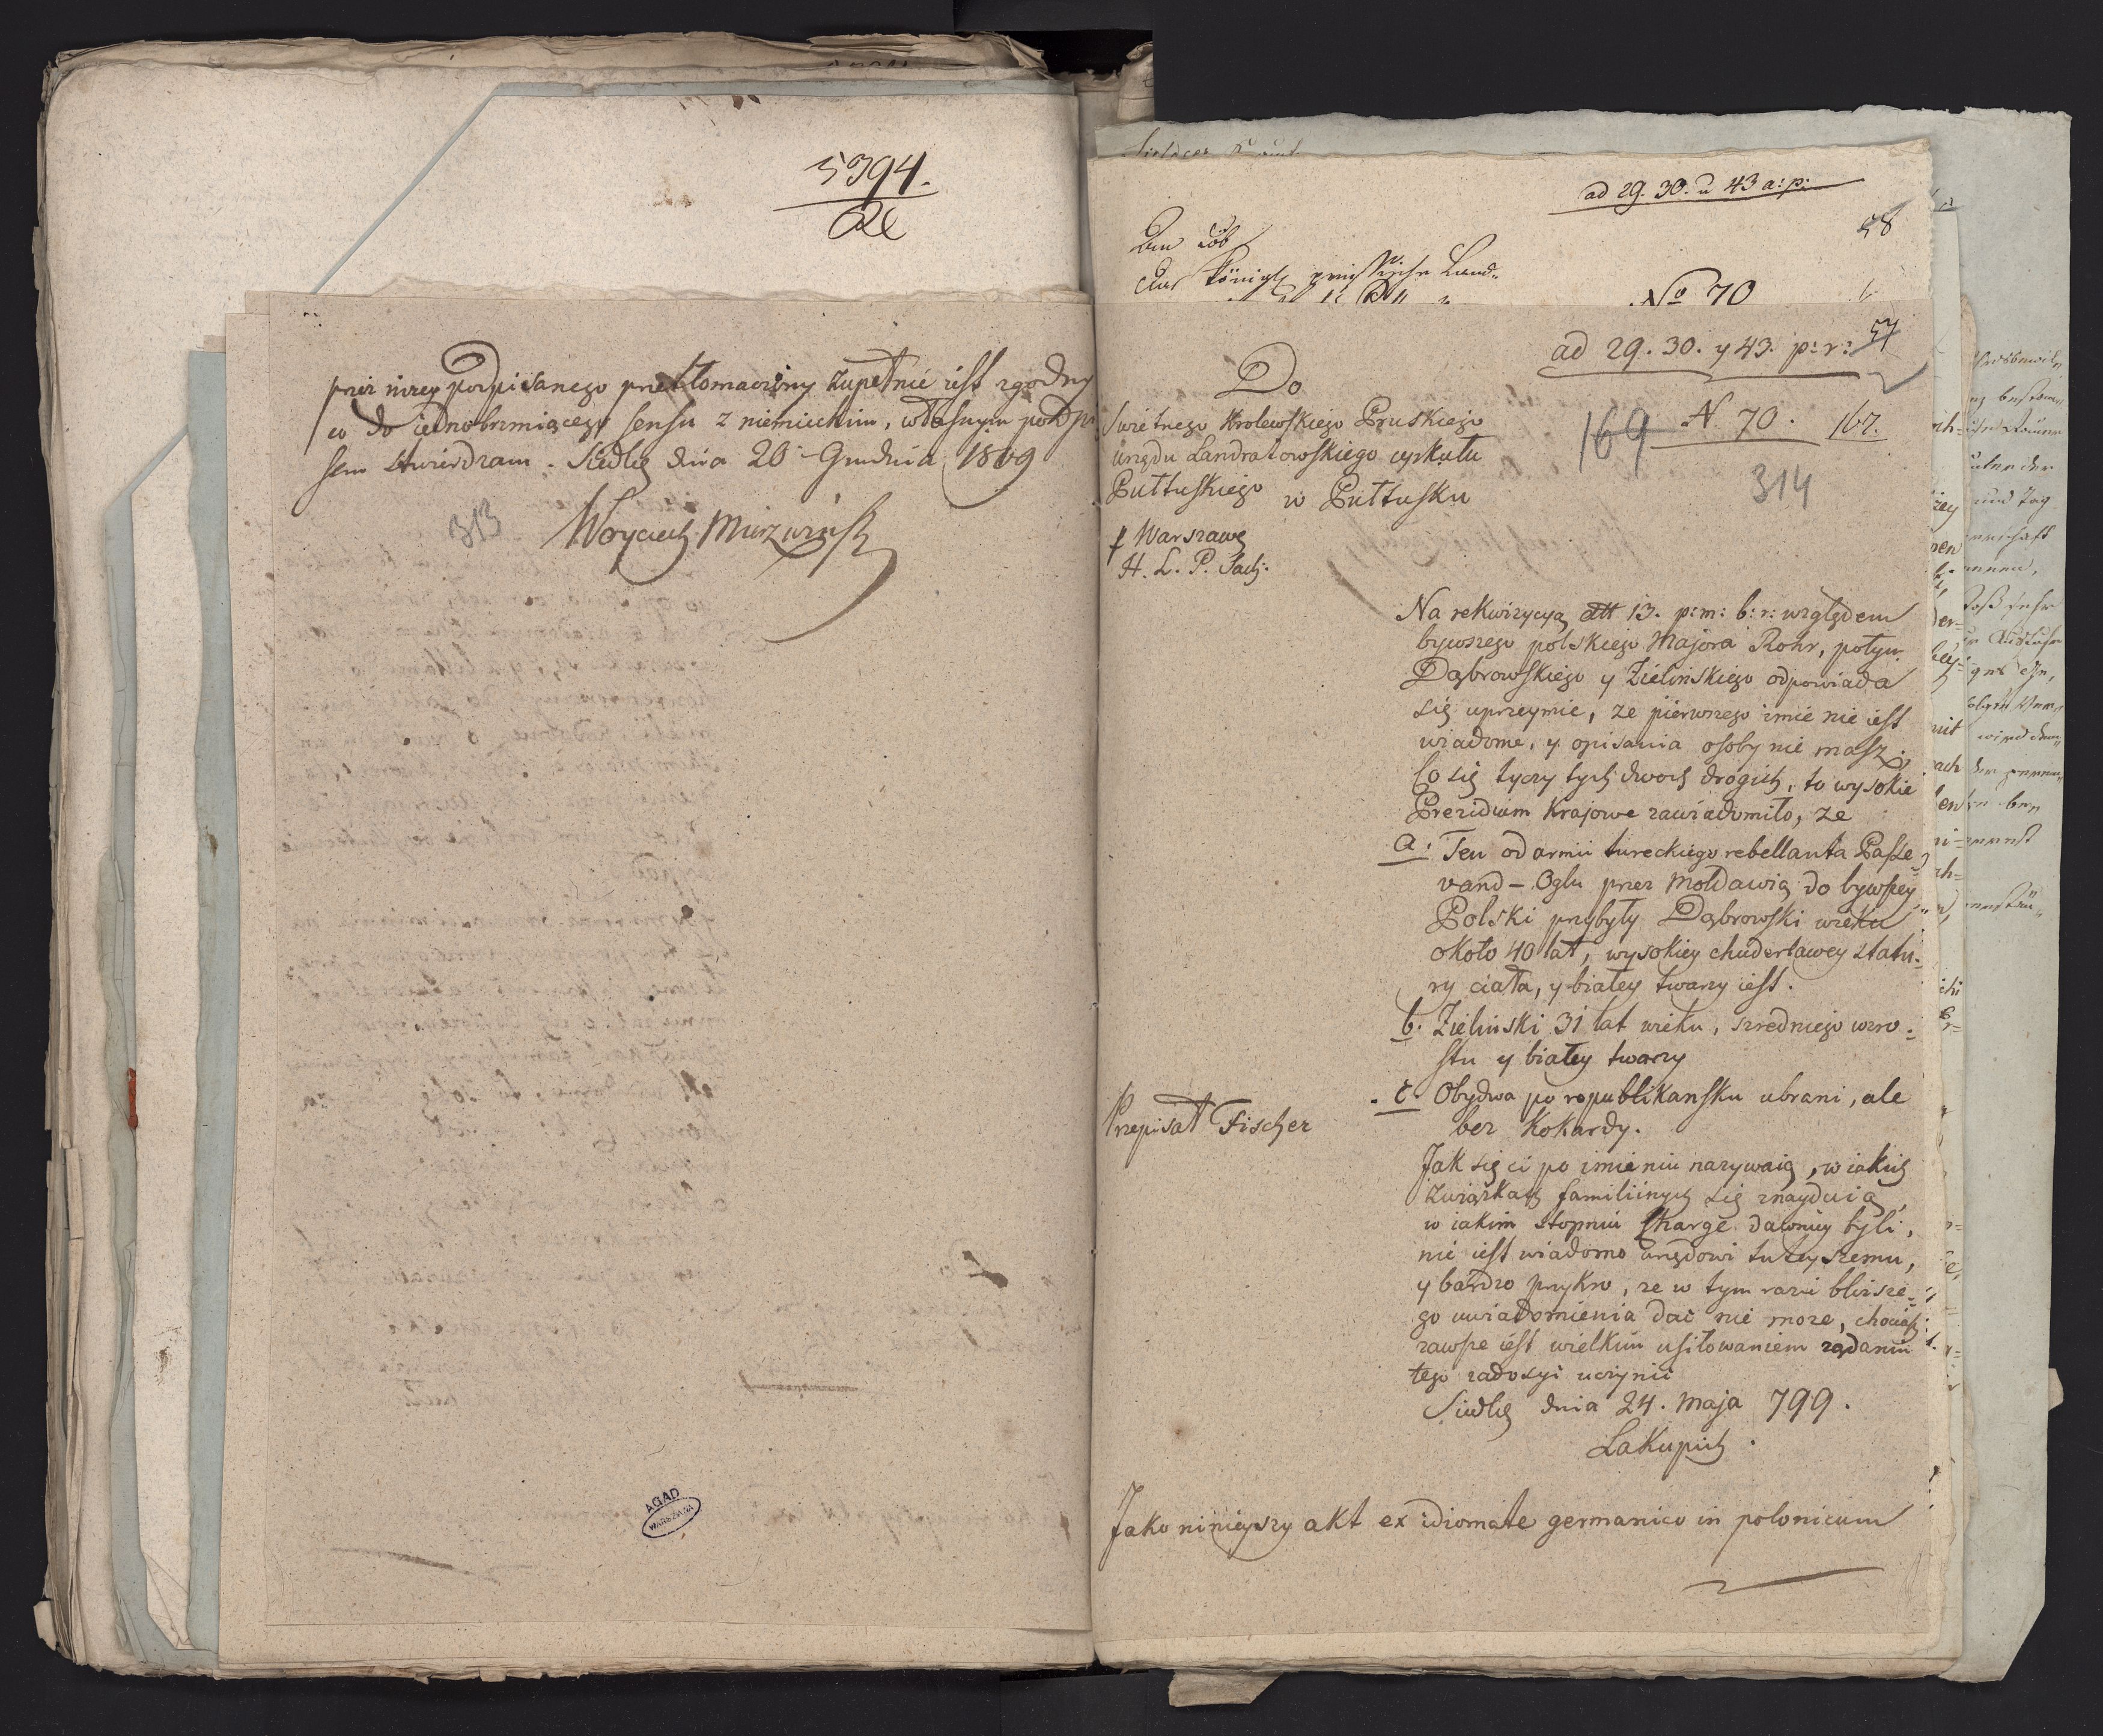 5394.
przez niżey podpisanego przetłomaczony zupełnie iest zgodny
co do iednobrzmiącego sensu z niemieckim, własnym podpi
sem stwierdzam. Siedlce dnia 20 Grudnia 1809
313
Woyciech
AGAD
WARSZAWA
ad 29. 30. u 43 a: p:
58
An das
Königl
No 70
ad 29. 30. y 43. p: r:
57
Do
Swietnego Krolewskiego Pruskiego
urzędu Landratowskiego cyrkułu
Pułtuskiego w Pułtusku
169 N. 70. 167.
314
p Warszawę
H. L. P. Sach:
Na rekwizycyą dtt 13. p: m: b: r: względem
bywszego polskiego Majora Rohr, potym
Dąbrowskiego y Zielinskiego odpowiada
się uprzeymie, ze pierwszego imie nie iest
wiadome, y opisania osoby nie masz.
Co się tyczy tych dwoch drogich, to wysokie
Prezidium Krajowe zawiadomiło, ze
a. Ten od armii tureckiego rebellanta Passe
vand-Oglu przez Mołdawią do bywszey
Polski przybyły Dąbrowski wieku
około 40 lat, wysokiey chuderławey statu-
ry ciała, y białey twarzy iest.
b. Zielinski 31 lat wieku, szredniego wzro-
stu y białey twarzy
c. Obydwa po republikansku ubrani, ale
bez Kokardy.
Przepisał Fischer
Jak się ci po imieniu nazywaią, w iakich
związkach familiinych się znayduią,
w iakim stopniu Charge dawniey byli,
nie iest wiadomo urzędowi tuteyszemu,
y bardzo przykro, ze w tym razie blizsze-
go uwiadomienia dać nie moze, chociasz
zawsze iest wielkim usiłowaniem ządaniu
tego zadosyć uczynić
Siedlce dnia 24. Maja 799.
Lakupich.
Jako ninieyszy akt ex idiomate germanico in polonicum